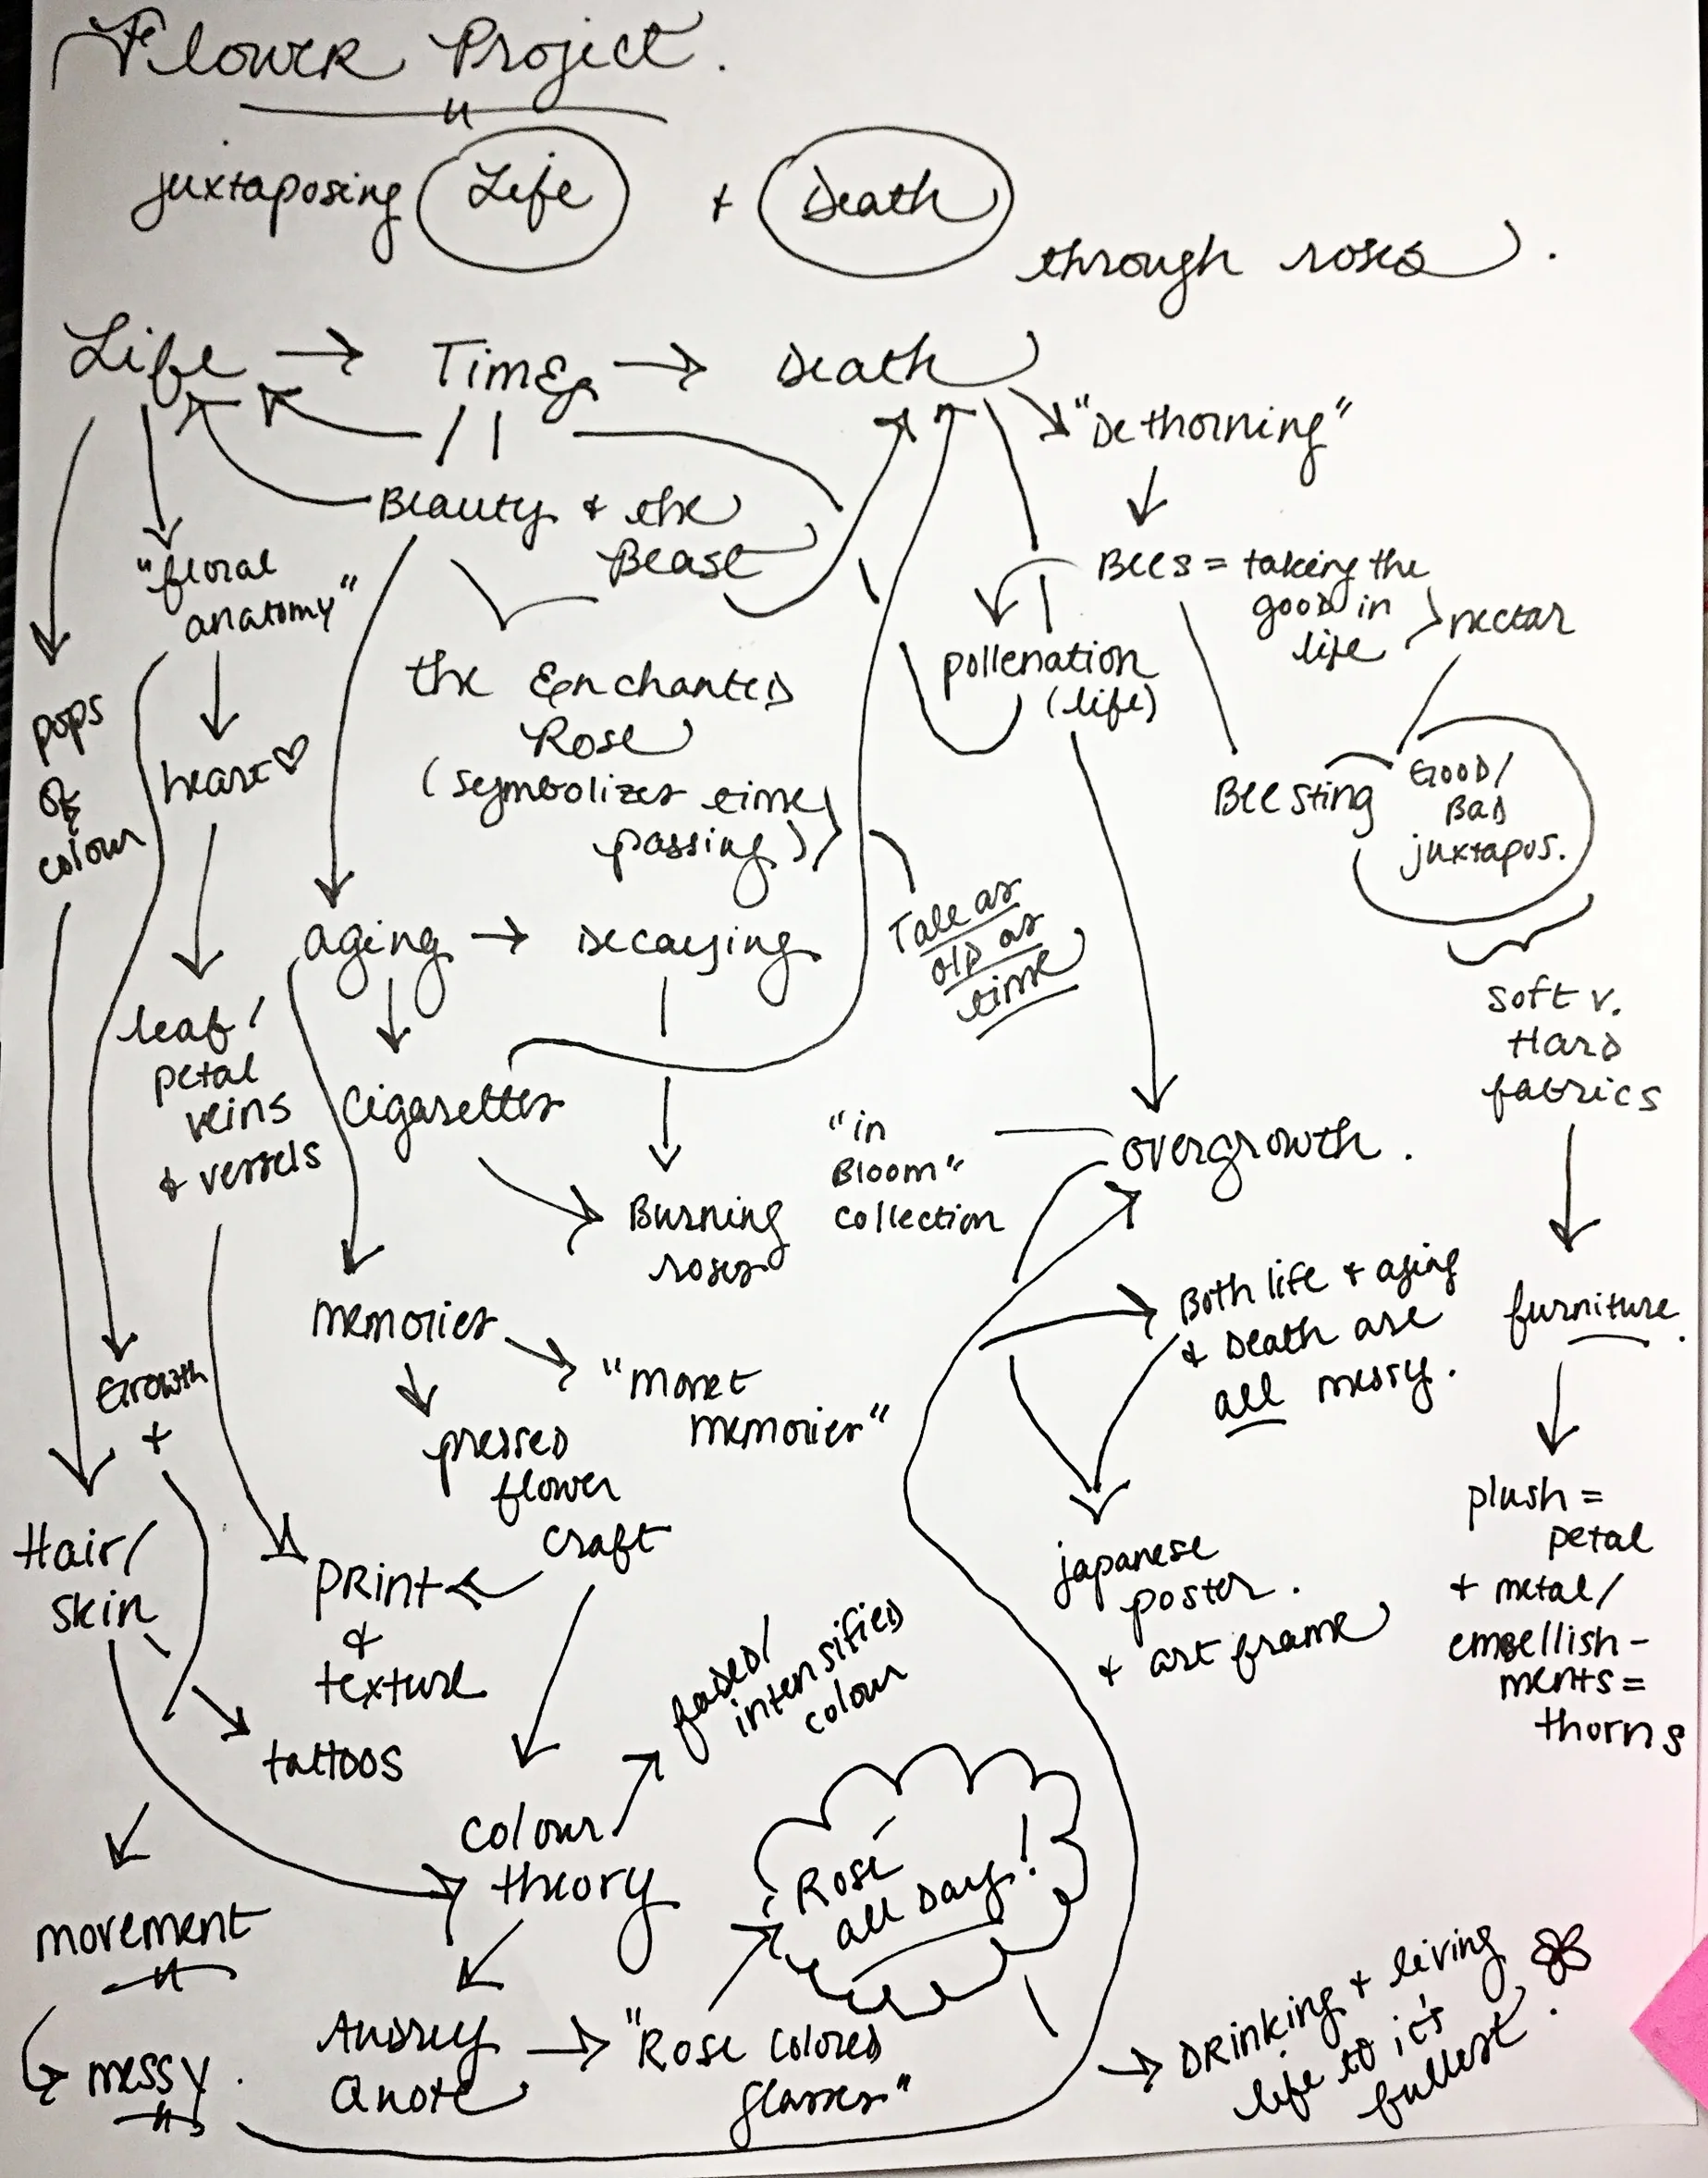 Flower Project.
juxtaposing Life + Death
through roses.
Life → Time → Death
"Dethorning"
Beauty & the
Beast
"floral
anatomy"
Bees = taking the
good in
life
nectar
pollenation
(life)
the Enchanted
Rose
(symbolizes time
passing)
pops
of
colour
heart ♡
Bee sting
Good/
Bad
juxtapos.
Tale as
old as
time
aging → Decaying
soft v.
Hard
fabrics
leaf/
petal
veins
& vessels
Cigarettes
"in
Bloom"
collection
overgrowth.
Burning
roses
Both life + aging
& Death are
all messy.
furniture.
memories
"monet
memories"
Growth
+
pressed
flower
craft
plush =
petal
+ metal/
embellish-
ments =
thorns
Hair/
skin
print
&
texture
japanese
poster.
+ art frame
faded/
intensified
colour
tattoos
colour
theory
Rosé
all Day!
movement
messy.
Audrey
Quote → "Rose Colored
Glasses"
→ Drinking + living
life to it's
fullest.